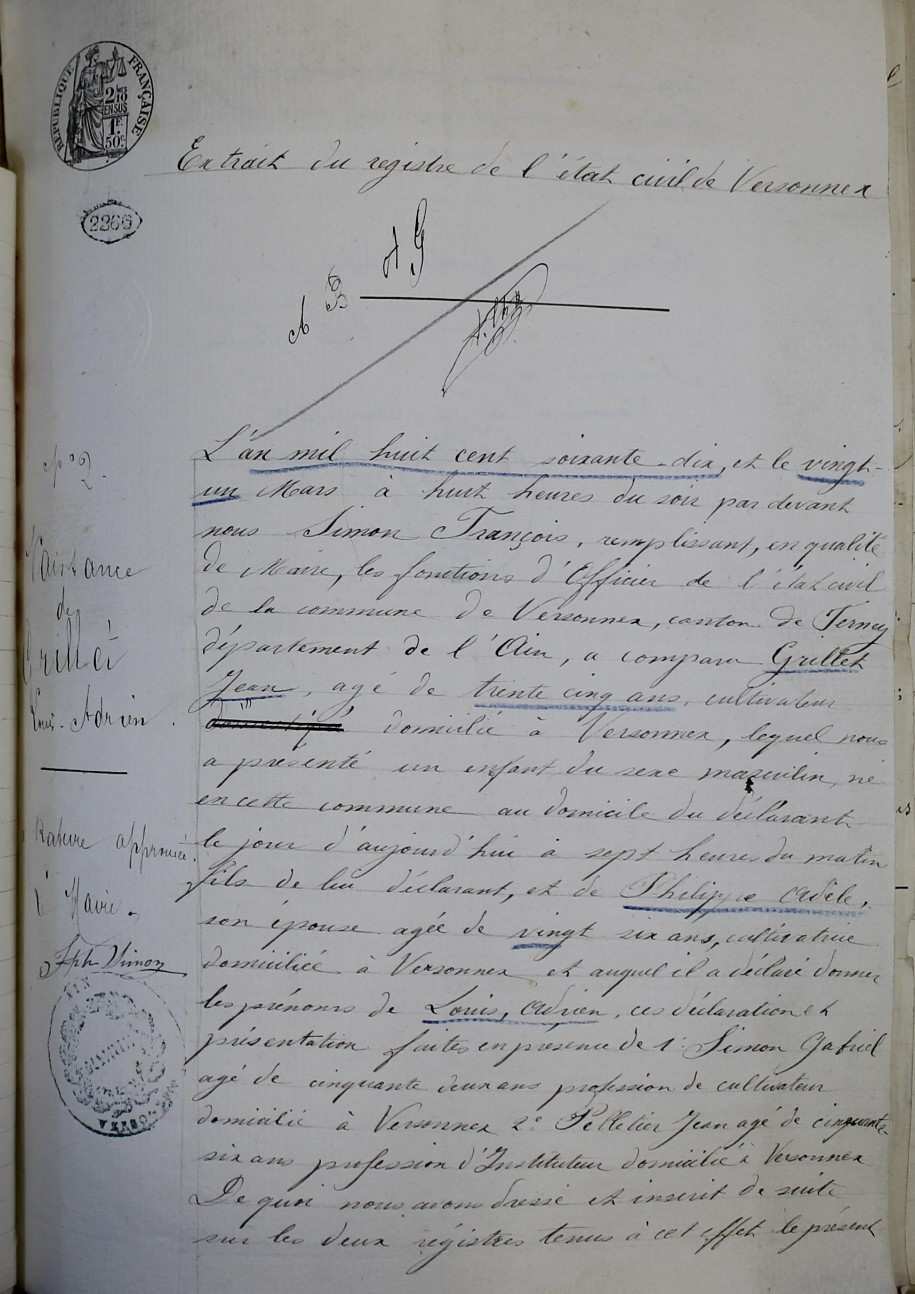 RÉPUBLIQUE FRANÇAISE
2/10
EN SUS
1F
50c
Extrait du registre de l'état civil de Versonnex
2266
A B A G
n° 2.
Naissance
de
Grillet
Louis-Adrien.
Rature approuvée.
Le Maire.
Simon
L'an mil huit cent soixante-dix, et le vingt-
un Mars à huit heures du soir par devant
nous Simon François, remplissant, en qualité
de Maire, les fonctions d'Officier de l'état civil
de la commune de Versonnex, canton de Ferney
département de l'Ain, a comparu Grillet
Jean, agé de trente cinq ans, cultivateur
domicilié à Versonnex, lequel nous
a présenté un enfant du sexe masculin, né
en cette commune au domicile du déclarant
le jour d'aujourd'hui à sept heures du matin
fils de lui déclarant, et de Philippe Adèle,
son épouse agée de vingt six ans, cultivatrice
domiciliée à Versonnex et auquel il a déclaré donner
les prénoms de Louis, Adrien, ces déclaration et
présentation faites en présence de 1° Simon Gabriel
agé de cinquante deux ans profession de cultivateur
domicilié à Versonnex 2° Pelletier Jean agé de cinquante-
six ans profession d'Instituteur domicilié à Versonnex
De quoi nous avons dressé et inscrit de suite
sur les deux régistres tenus à cet effet le présent